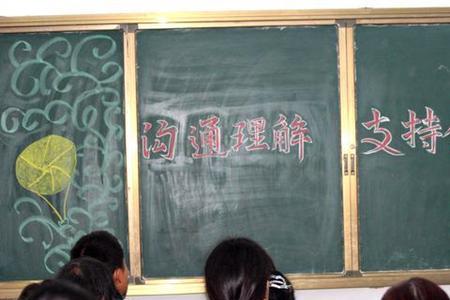 沟通理解 支持